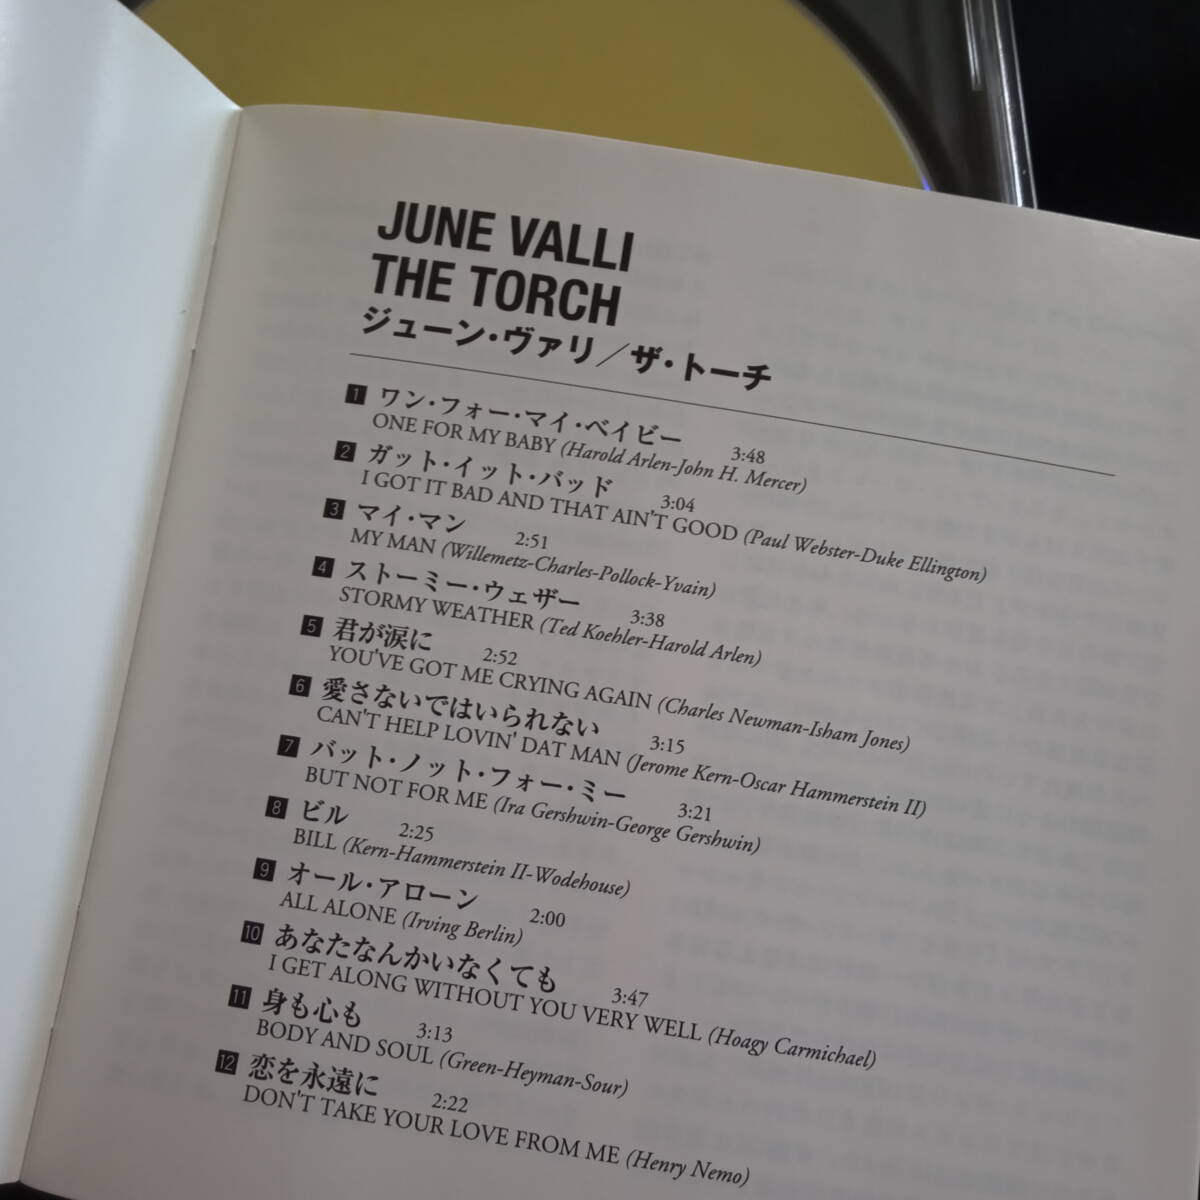 JUNE VALLI
THE TORCH
ジューン・ヴァリ／ザ・トーチ
1 ワン・フォー・マイ・ベイビー 3:48
ONE FOR MY BABY (Harold Arlen-John H. Mercer)
2 ガット・イット・バッド 3:04
I GOT IT BAD AND THAT AIN'T GOOD (Paul Webster-Duke Ellington)
3 マイ・マン 2:51
MY MAN (Willemetz-Charles-Pollock-Yvain)
4 ストーミー・ウェザー 3:38
STORMY WEATHER (Ted Koehler-Harold Arlen)
5 君が涙に 2:52
YOU'VE GOT ME CRYING AGAIN (Charles Newman-Isham Jones)
6 愛さないではいられない 3:15
CAN'T HELP LOVIN' DAT MAN (Jerome Kern-Oscar Hammerstein II)
7 バット・ノット・フォー・ミー 3:21
BUT NOT FOR ME (Ira Gershwin-George Gershwin)
8 ビル 2:25
BILL (Kern-Hammerstein II-Wodehouse)
9 オール・アローン 2:00
ALL ALONE (Irving Berlin)
10 あなたなんかいなくても 3:47
I GET ALONG WITHOUT YOU VERY WELL (Hoagy Carmichael)
11 身も心も 3:13
BODY AND SOUL (Green-Heyman-Sour)
12 恋を永遠に 2:22
DON'T TAKE YOUR LOVE FROM ME (Henry Nemo)